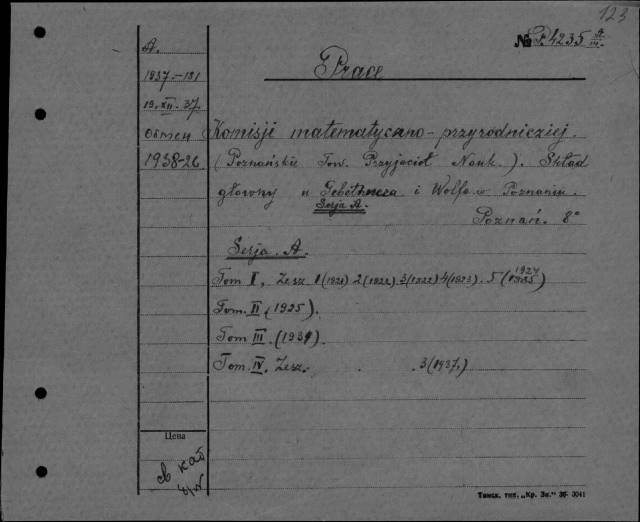 123
№ P.4235 A/III.
A.
Prace
1937.-181
19.XII.37.
Обмен Komisji matematyczno-przyrodniczej.
1938-26 (Poznańskie Tow. Przyjaciół Nauk.). Skład
główny u Gebethnera i Wolfa w Poznaniu.
Serja A.
Poznań. 8°
Serja. A.
Tom I, Zesz. 1(1921) 2(1922) 3(1922) 4(1923). 5(1924
1925)
Tom. II (1925).
Tom III. (1931).
Tom. IV. Zesz. 3(1937.)
Цена
св кат
Томск. тип. „Кр. Зн.“ 36- 3041